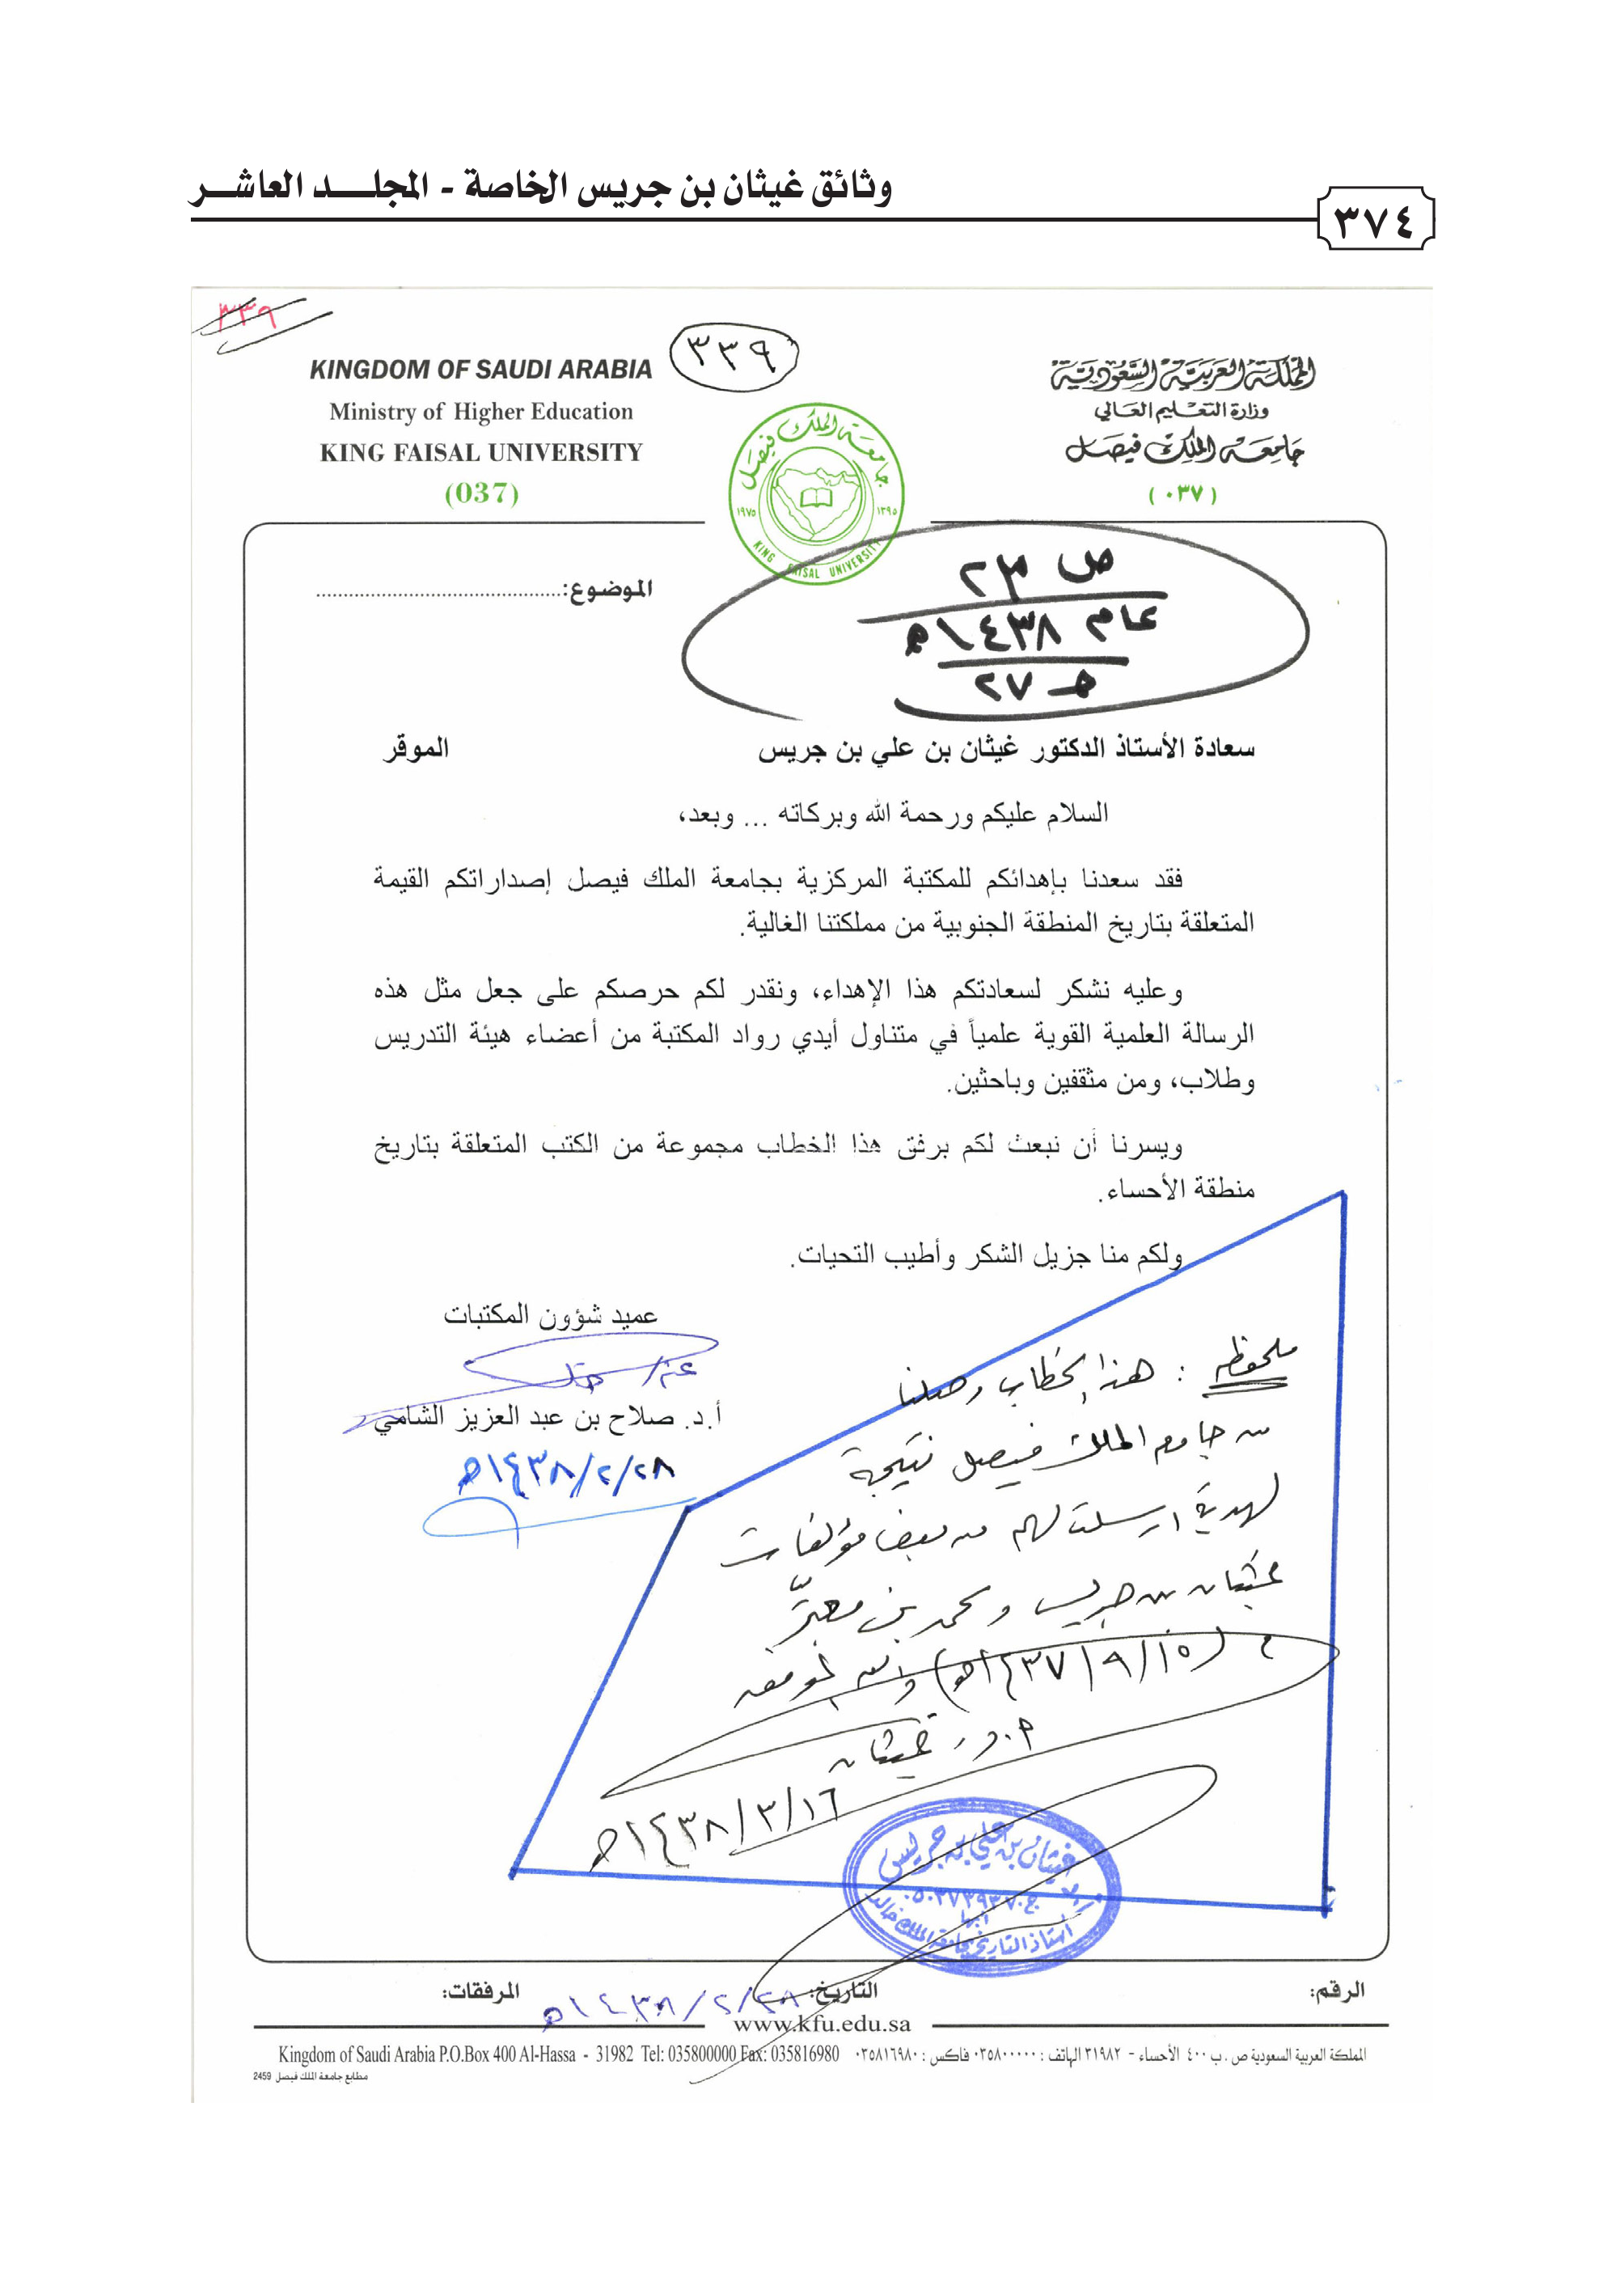 وثائق غيثان بن جريس الخاصة - المجلد العاشر
٣٧٤
٣٣٩
٣٣٩
KINGDOM OF SAUDI ARABIA
Ministry of Higher Education
KING FAISAL UNIVERSITY
(037)
المملكة العربية السعودية
وزارة التعليم العالي
جامعة الملك فيصل
(٠٣٧)
جامعة الملك فيصل
١٩٧٥ ١٣٩٥
KING FAISAL UNIVERSITY
ص ٢٣
عام ١٤٣٨هـ
هـ ٢٧
الموضوع:
سعادة الأستاذ الدكتور غيثان بن علي بن جريس الموقر
السلام عليكم ورحمة الله وبركاته ... وبعد،
فقد سعدنا بإهدائكم للمكتبة المركزية بجامعة الملك فيصل إصداراتكم القيمة
المتعلقة بتاريخ المنطقة الجنوبية من مملكتنا الغالية.
وعليه نشكر لسعادتكم هذا الإهداء، ونقدر لكم حرصكم على جعل مثل هذه
الرسالة العلمية القوية علمياً في متناول أيدي رواد المكتبة من أعضاء هيئة التدريس
وطلاب، ومن مثقفين وباحثين.
ويسرنا أن نبعث لكم برفق هذا الخطاب مجموعة من الكتب المتعلقة بتاريخ
منطقة الأحساء.
ولكم منا جزيل الشكر وأطيب التحيات.
عميد شؤون المكتبات
أ.د. صلاح بن عبد العزيز الشامي
٢٨/٢/١٤٣٨هـ
ملحوظة : هذا الخطاب وصلنا
من جامعة الملك فيصل نتيجة
لهدية أرسلت لهم من بعض مؤلفات
غيثان بن جريس و محمد بن معبر
في (١٥/٩/١٤٣٧هـ) والله الموفق
أ.د. غيثان
١٦/٣/١٤٣٨هـ
غيثان بن علي بن جريس
أبها
أستاذ التاريخ بجامعة الملك خالد
الرقم:
التاريخ: ٢٨/٢/١٤٣٨هـ
المرفقات:
www.kfu.edu.sa
Kingdom of Saudi Arabia P.O.Box 400 Al-Hassa - 31982 Tel: 035800000 Fax: 035816980
المملكة العربية السعودية ص . ب ٤٠٠ الأحساء - ٣١٩٨٢ الهاتف : ٠٣٥٨٠٠٠٠٠ فاكس : ٠٣٥٨١٦٩٨٠
مطابع جامعة الملك فيصل 2459